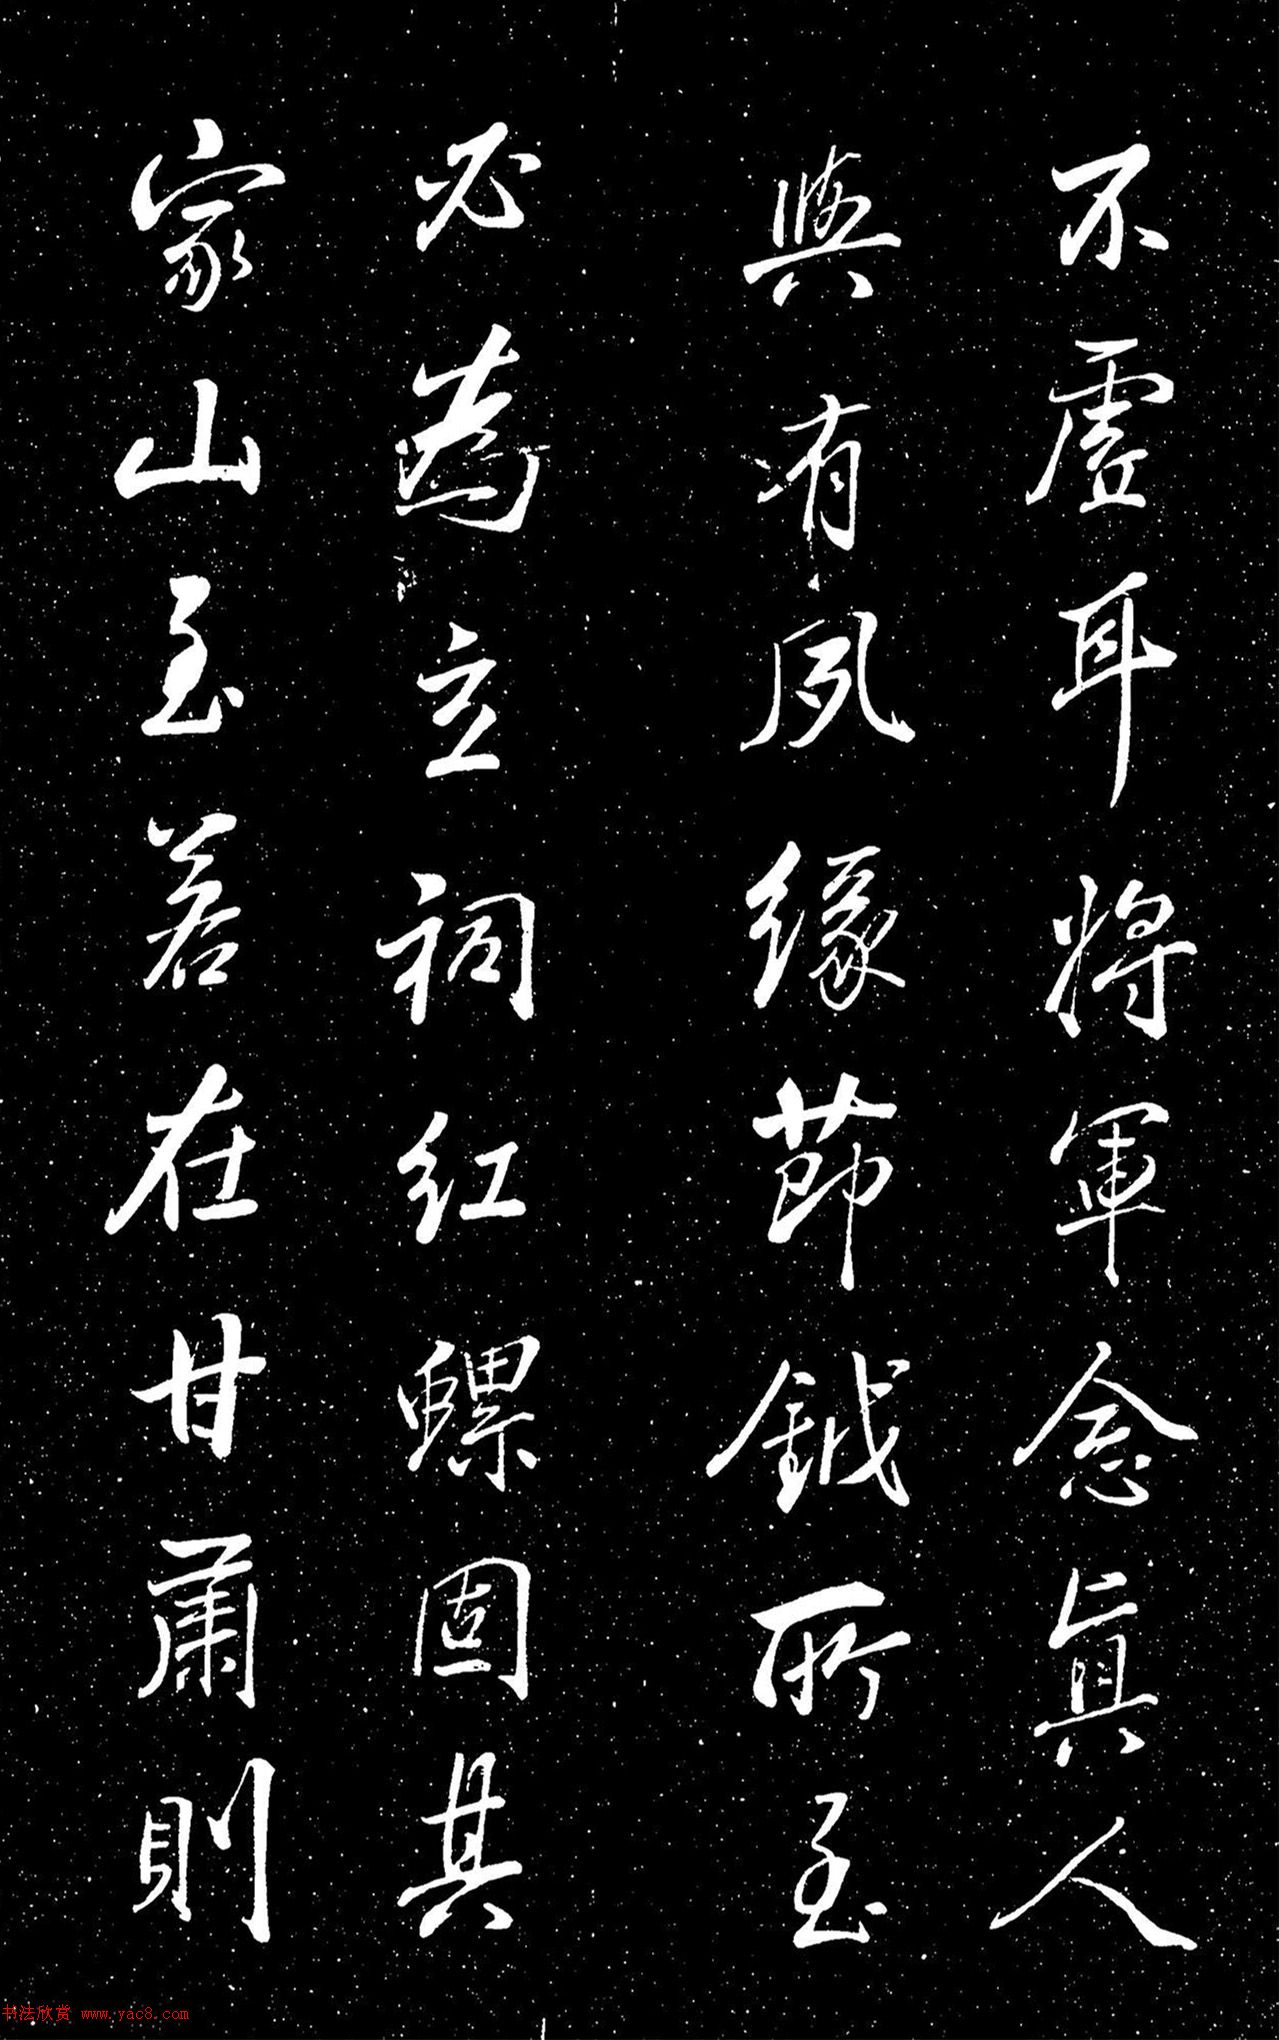 不虛耳將軍念真人
與有夙緣節鉞所至
必為立祠红螺固其
家山至若在甘肅則
书法欣赏 www.yac8.com